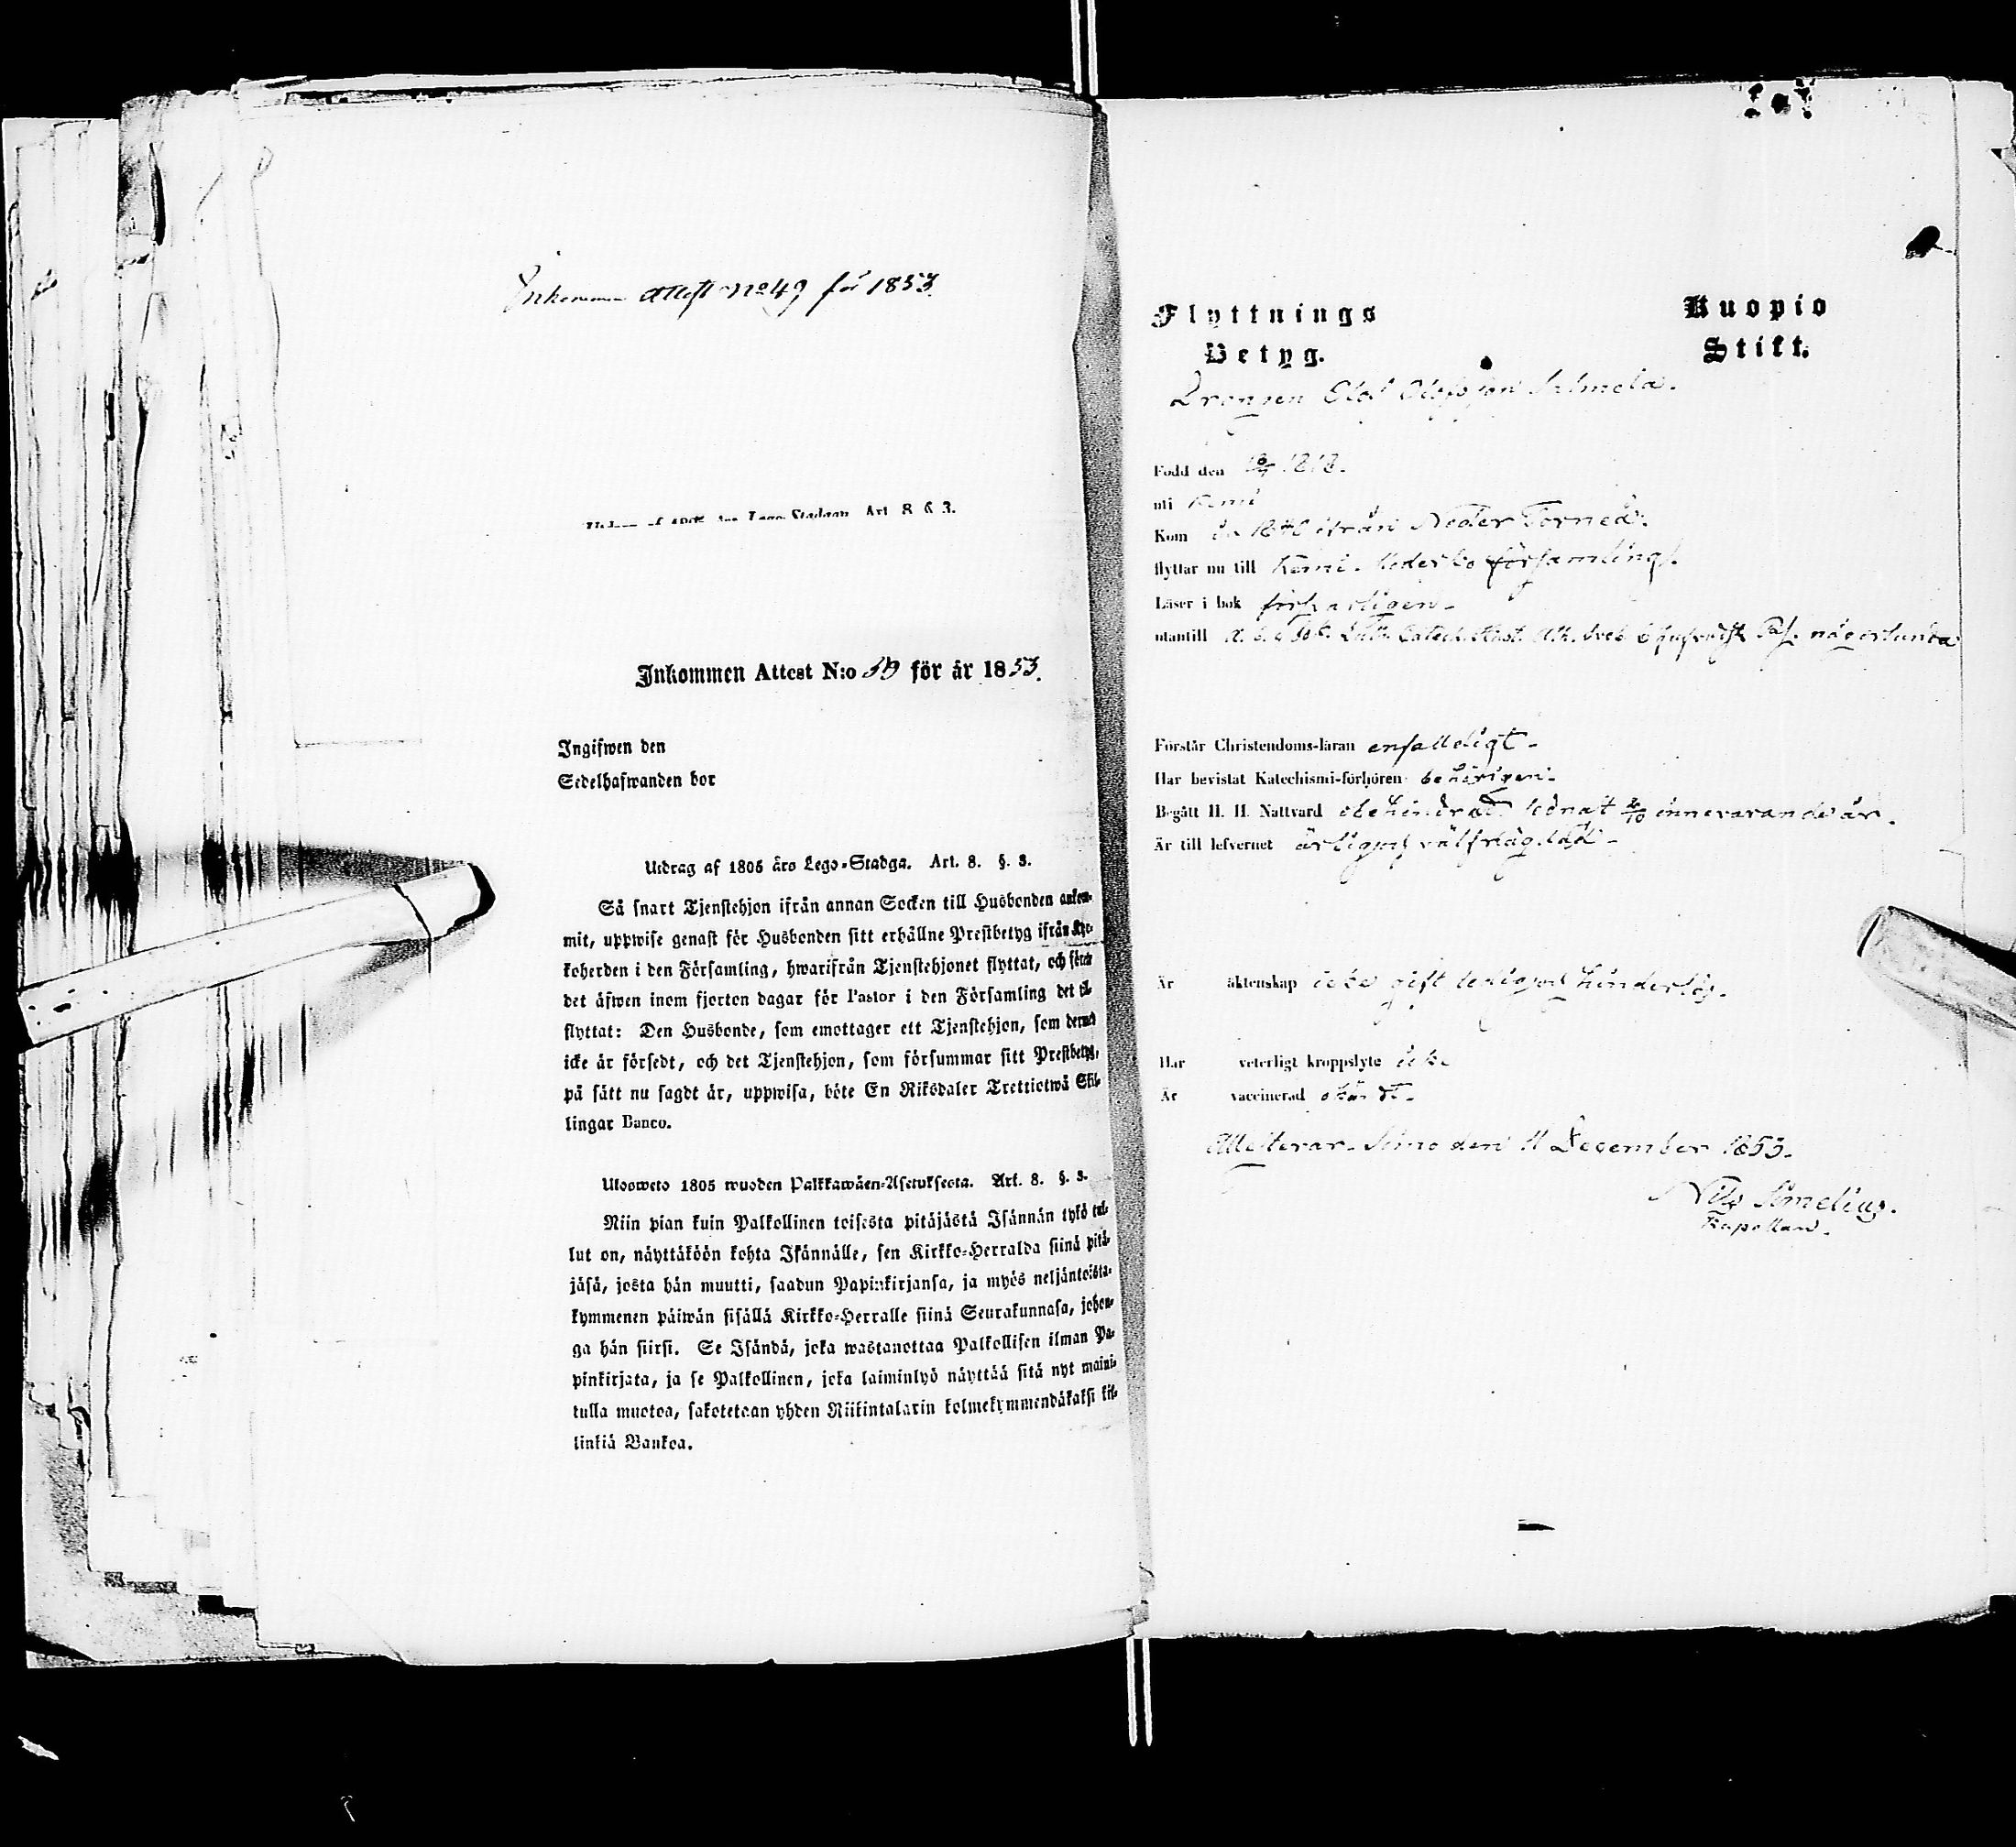 Inkommen Attest No 49 för 1853.
Lego-Stadgan Art. 8 § 3.
Inkommen Attest N:o 50 för år 1853.
Ingifwen den
Sedelhafwanden bor
Utdrag af 1805 års Lego-Stadga. Art. 8. §. 3.
Så snart Tjenstehjon ifrån annan Socken till Husbonden ankom-
mit, uppwise genast för Husbonden sitt erhållne Prestbetyg ifrån Kyr-
koherden i den Församling, hwarifrån Tjenstehjonet flyttat, och förete
det äfwen inom fjorton dagar för Pastor i den Församling det til-
flyttat: Den Husbonde, som emottager ett Tjenstehjon, som dermed
icke är försedt, och det Tjenstehjon, som försummar sitt Prestbetyg,
på sätt nu sagdt är, uppwisa, böte En Riksdaler Trettiotwå Skil-
lingar Banco.
Ulosweto 1805 wuoden Palkkawäen-Asetuksesta. Art. 8. §. 3.
Niin pian kuin Palkollinen toisesta pitäjästä Isännän tykö tul-
lut on, näyttäköön kohta Isännälle, sen Kirkko-Herralda siinä pitä-
jäsä, josta hän muutti, saadun Papinkirjansa, ja myös neljäntoista-
kymmenen päiwän sisällä Kirkko-Herralle siinä Seurakunnasa, johon-
ga hän siirsi. Se Isändä, joka wastanottaa Palkollisen ilman Pa-
pinkirjata, ja se Palkollinen, joka laiminlyö näyttää sitä nyt maini-
tulla muotoa, sakotetaan yhden Riikintalarin kolmekymmendäkaksi kil-
linkiä Bankoa.
Flyttnings Kuopio
Betyg. Stift.
Drengen Olof Olofsson Salmela.
Född den 1818.
uti Kemi
Kom år 1840 ifrån Neder Torneå.
flyttar nu till Kemi Moderkoförsamling.
Läser i bok försvarligen.
utantill Luth. Catech. någorlunda
Förstår Christendoms-läran enfalldigt.
Har bevistat Katechismi-förhören behörigen.
Begått H. H. Nattvard obehindrad sednast 2/10 innevarande år.
Är till lefvernet ärlig och välfrägdad.
Är äktenskap icke gift ledig och hinderlös.
Har veterligt kroppslyte icke.
Är vaccinerad okändt.
Attesterar. Simo den 11 December 1853.
Nils Simelius.
Kapellan.